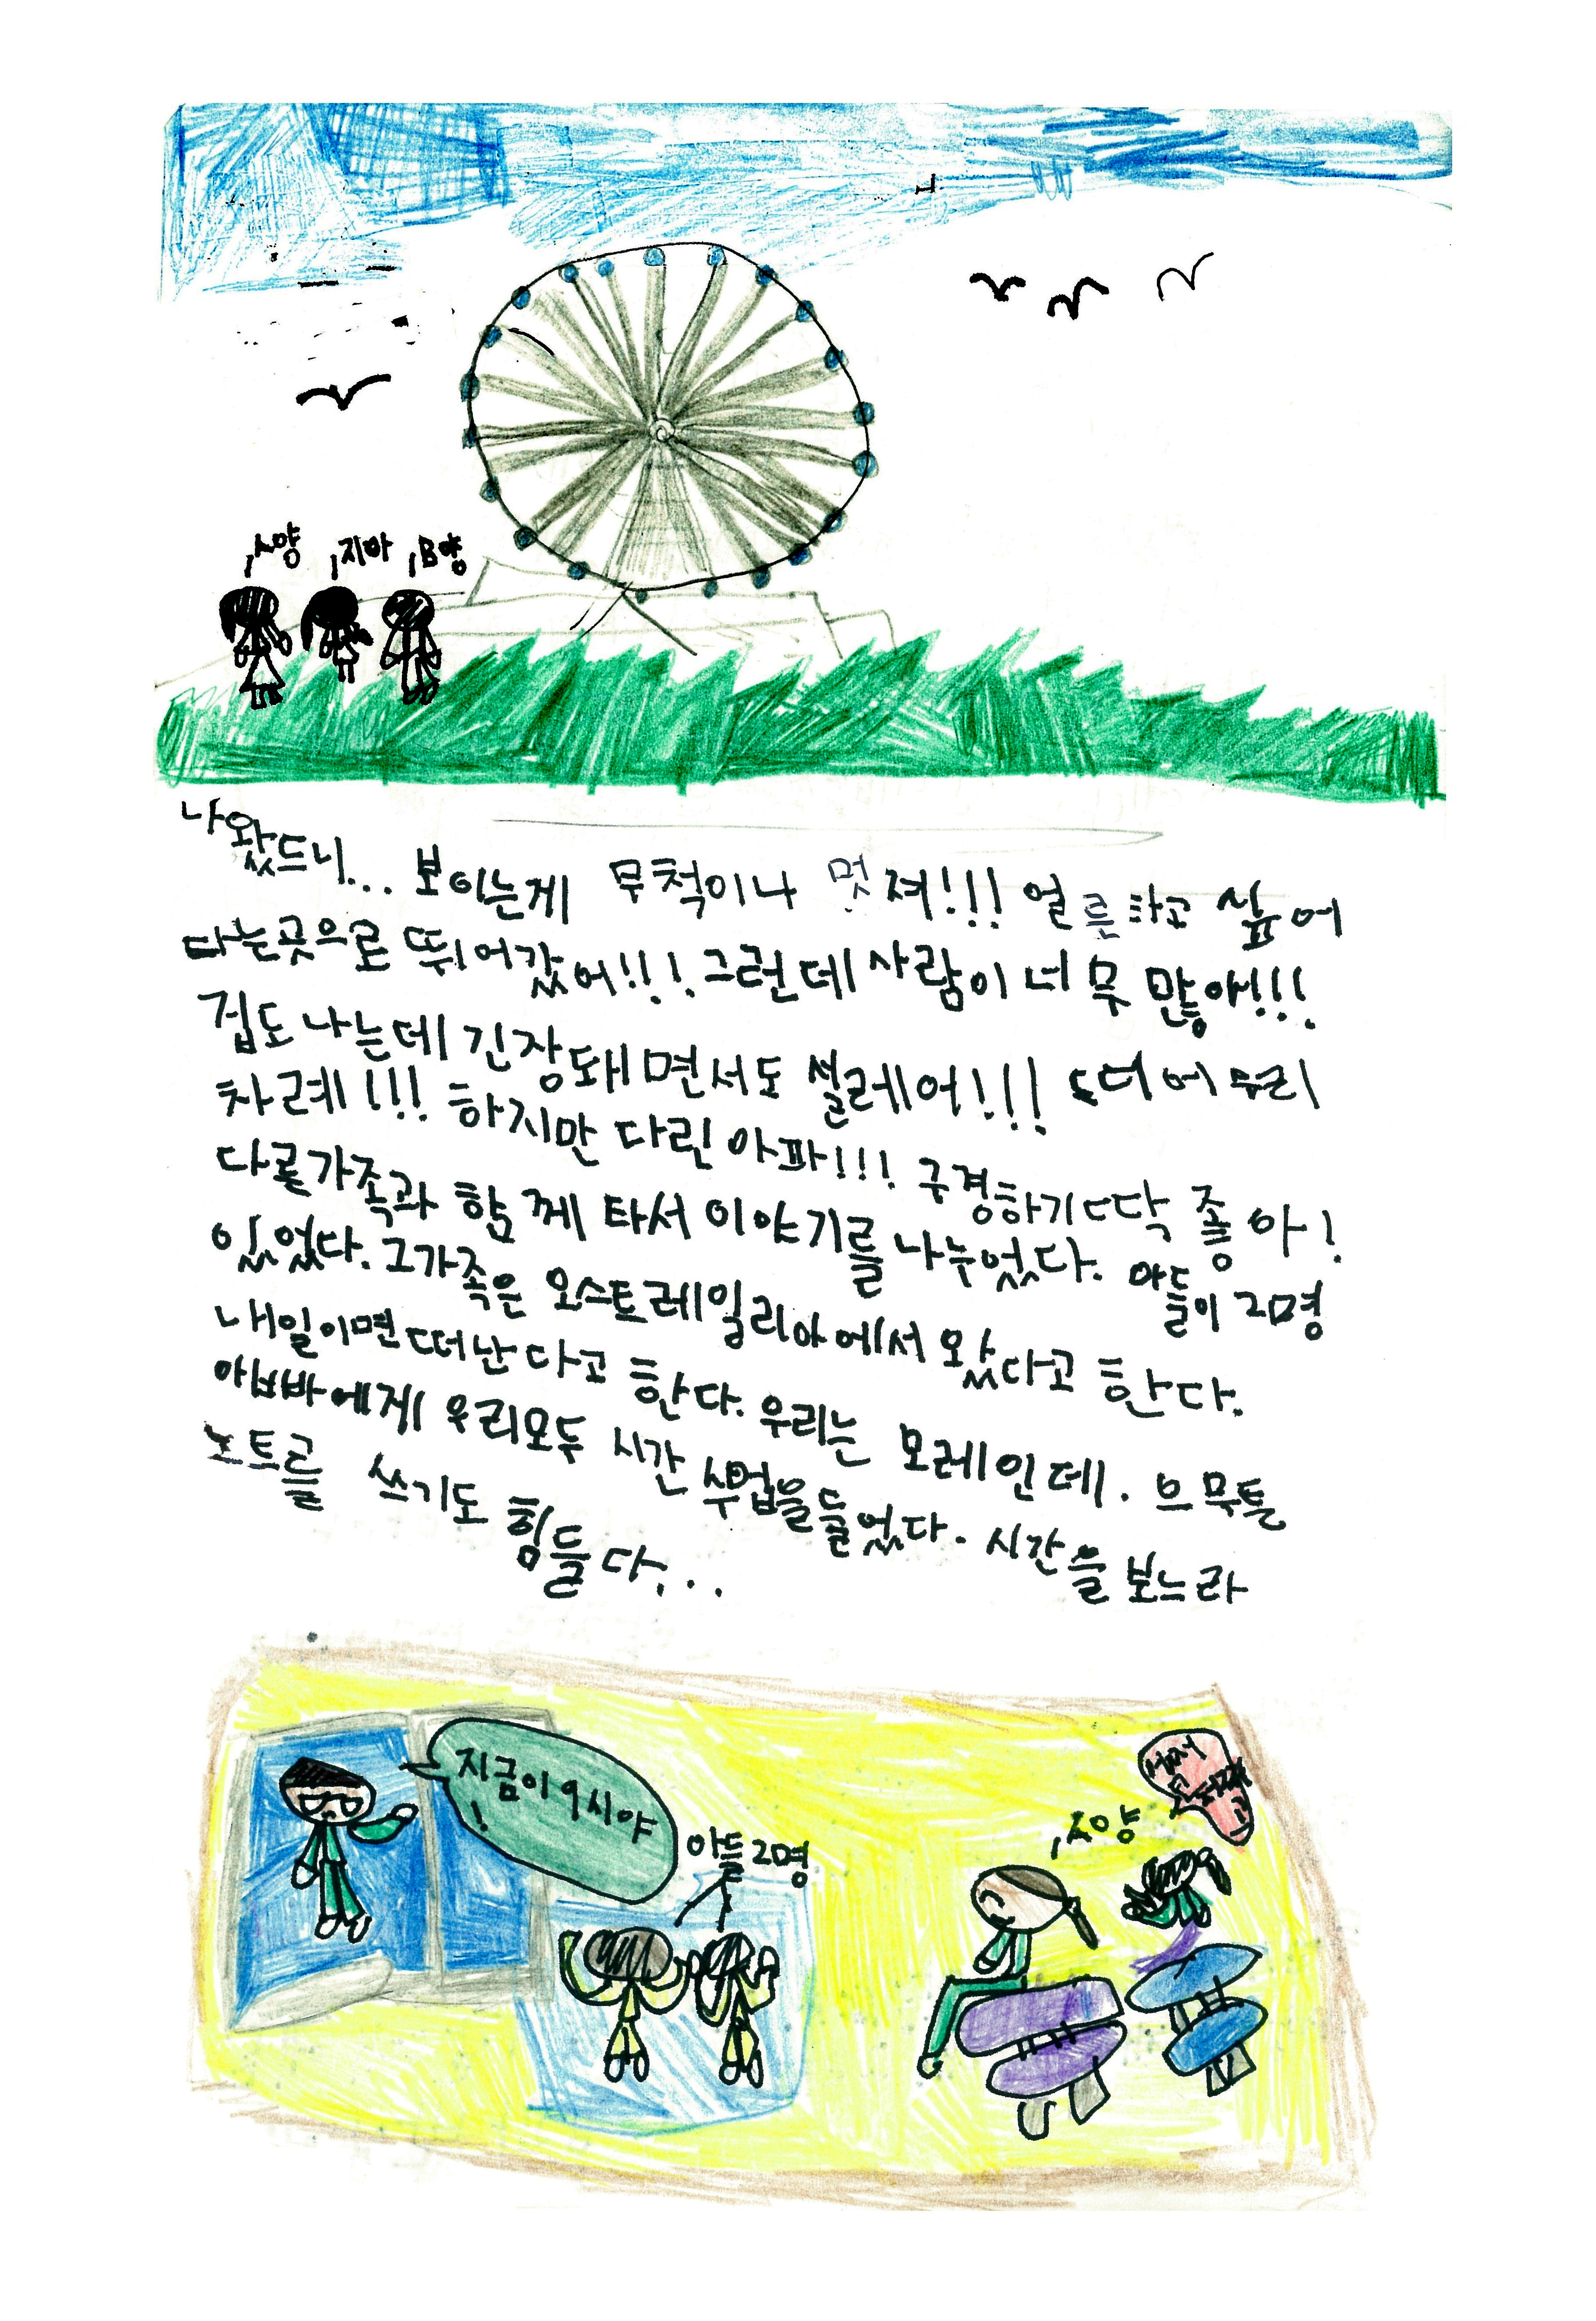 A양 지아 B양
나왔드니... 보이는게 무척이나 멋져!!! 얼른타고 싶어
타는곳으로 뛰어갔어!!! 그런데 사람이 너무 많아!!!
겁도 나는데 긴장돼면서도 설레어!!! 드디어 우리
차례!!! 하지만 다린 아파!!! 구경하기 딱 좋아!
다른가족과 함께 타서 이야기를 나누었다. 아들이 2명
있었다. 그가족은 오스트레일리아에서 왔다고 한다.
내일이면 떠난다고 한다. 우리는 모레인데. 브무튼
아빠에게 우리모두 시간 수업을들었다. 시간을 보느라
노트를 쓰기도 힘들다...
지금이 9시야!
아들 2명
A양